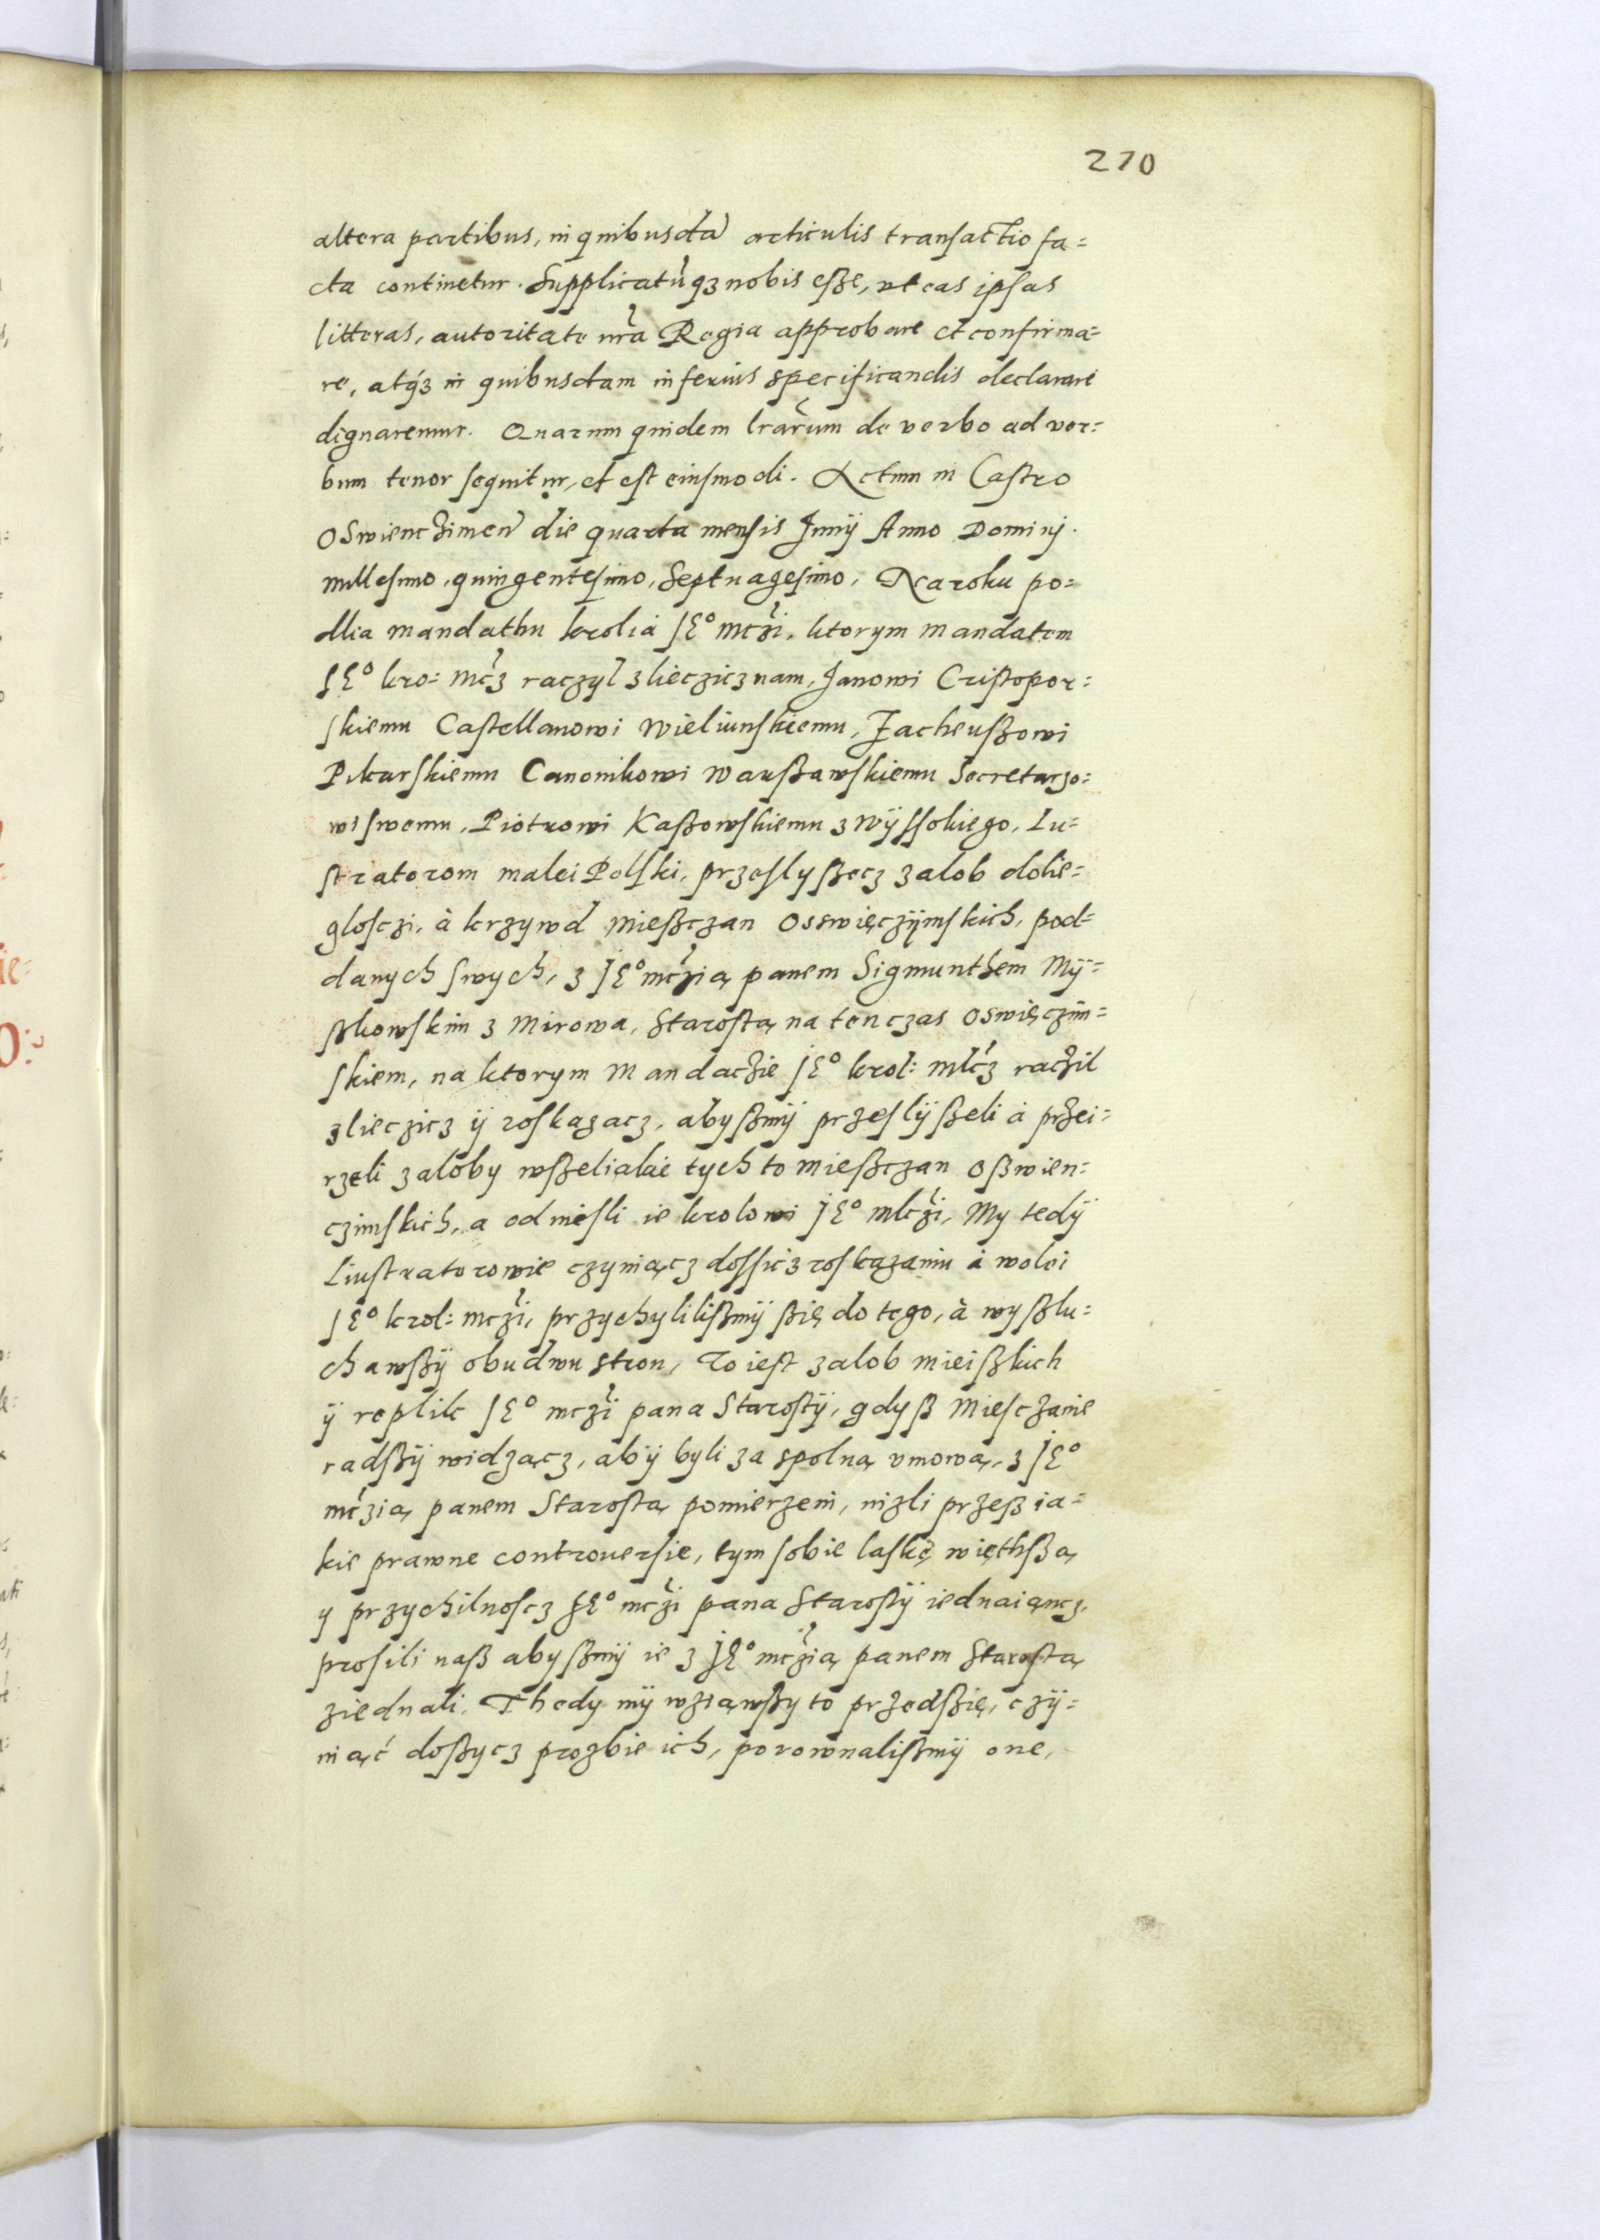 270
altera partibus, in quibusda͂ articulis transactio fa=
cta continetur. Supplicatu͂qʒ nobis esʒe, ut eas ipsas
litteras, autoritate nr̃a Regia approbare et confirma=
re, atqʒ in quibusdam inferius specificandis declarare
dignaremur. Quarum quidem lrãrum de verbo ad ver=
bum tenor sequitur, et est eiusmodi. Actum in Castro
Oswiencʒimen̄ die quarta mensis Junij Anno Dominj.
millesimo, quingentesimo, Septuagesimo, Na roku po=
dlia mandathu krolia JE° mcʒi, ktorym mandatem
JE° kro= mcʒ racʒyl ʒliecʒicʒ nam, Janowi Cristopor=
skiemu Castellanowi Wieliunskiemu, Zacheusʒowi
Pikarskiemu Canonikowi Warsʒawskiemu Secretarʒo=
wi swemu, Piotrowi Kasʒowskiemu ʒ Wÿssokiego, Lu=
stratorom malei Polski, prʒeslysʒecʒ ʒalob dolie=
gloscʒi, à krʒywd miesʒcʒan Osswięcʒÿmskich, pod=
danych swych, ʒ JE° mcʒią panem Sigmunthem Mÿ=
sʒkowskim ʒ Mirowa, Starostą na ten cʒas Oswięcʒim=
skiem, na ktorym Mandacʒie JE° krol: mlcʒ racʒil
ʒliecʒicʒ ÿ roskaʒacʒ, abysʒmÿ prʒeslÿsʒeli à prʒei=
rʒeli ʒaloby wsʒeliakie tych to miesʒcʒan Osʒwien=
cʒimskich, a odniesli ie krolowi JE° mlcʒi, My tedÿ
Liustratorowie cʒyniącʒ dossicʒ roskaʒaniu à wolei
JE° krol: mcʒi, prʒychylilisʒmÿ sʒię do tego, à wysʒlu=
chawsʒÿ obudwu stron, To iest ʒalob mieisʒkich
ÿ replik JE° mcʒi pana Starostÿ, gdysʒ Miescʒanie
radsʒÿ widʒącʒ, abÿ byli ʒa spolną umową, ʒ JE°
mcʒią panem Starostą pomierʒeni, niʒli prʒesʒ ia=
kie prawne controuersie, tym sobie laskę więthsʒą
y prʒychilnoscʒ JE° mcʒi pana Starostÿ iednaiąncʒ,
prosili nasʒ abysʒmÿ ie ʒ JE° mcʒią panem Starostą
ʒiednali. Thedy mÿ wʒiąwsʒy to prʒedsʒię, cʒÿ=
niąć dosʒycʒ proʒbie ich, porownalisʒmÿ one,